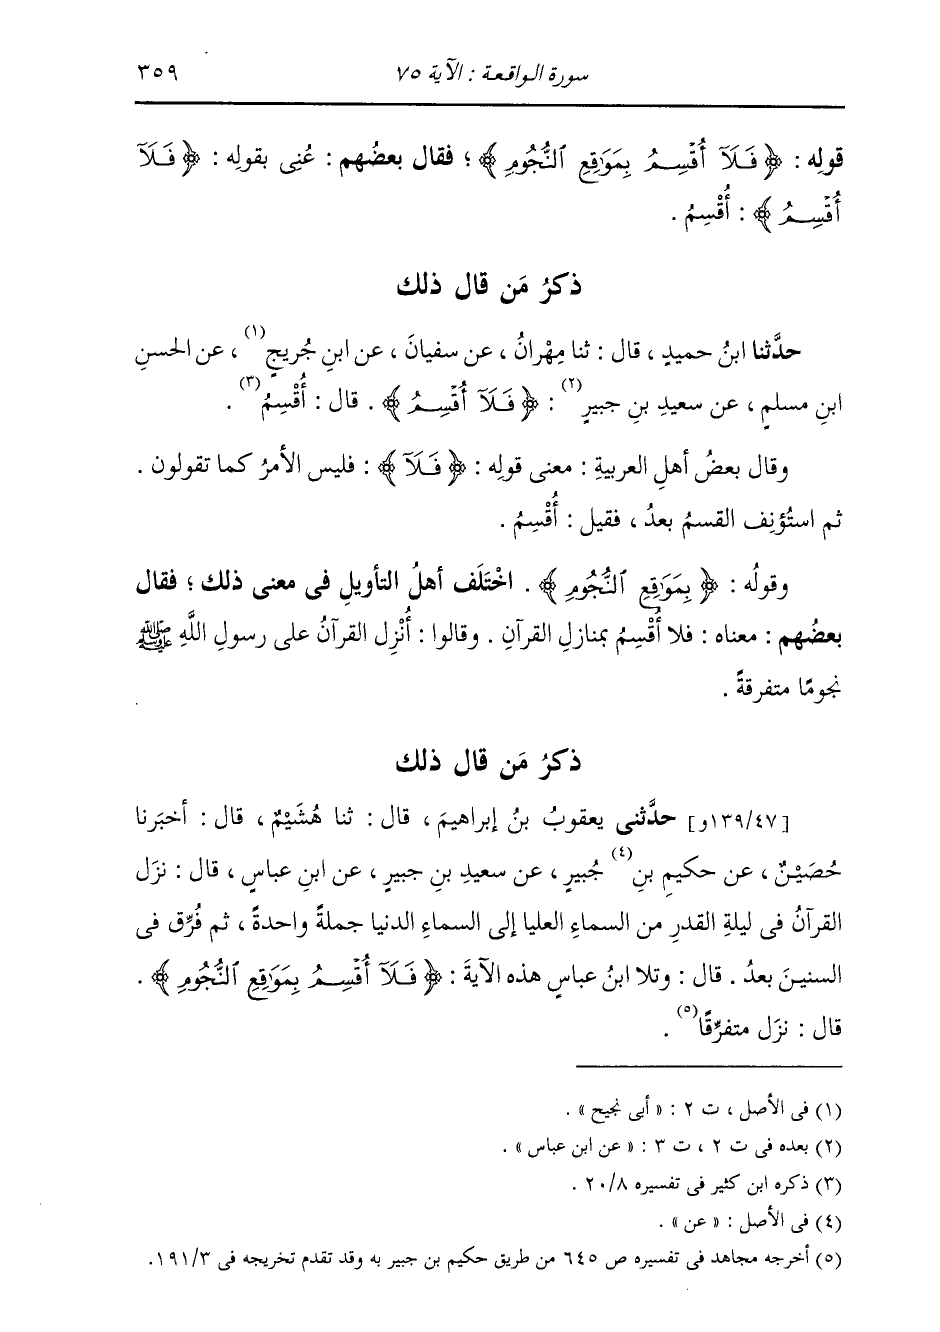 سورة الواقعة : الآية ٧٥ ٣٥٩
قولِه : ﴿ فَلَآ أُقْسِمُ بِمَوَٰقِعِ ٱلنُّجُومِ ﴾ ؛ فقال بعضُهم : عُنِى بقولِه : ﴿ فَلَآ
أُقْسِمُ ﴾ : أُقْسِمُ .
ذكرُ مَن قال ذلك
حدَّثنا ابنُ حميدٍ ، قال : ثنا مِهْرانُ ، عن سفيانَ ، عن ابنِ جُريجٍ(١) ، عن الحسنِ
ابنِ مسلمٍ ، عن سعيدِ بنِ جبيرٍ(٢) : ﴿ فَلَآ أُقْسِمُ ﴾ . قال : أُقْسِمُ(٣) .
وقال بعضُ أهلِ العربيةِ : معنى قولِه : ﴿ فَلَآ ﴾ : فليس الأمرُ كما تقولون .
ثم استُؤنِف القسمُ بعدُ ، فقيل : أُقْسِمُ .
وقولُه : ﴿ بِمَوَٰقِعِ ٱلنُّجُومِ ﴾ . اخْتَلَف أهلُ التأويلِ فى معنى ذلك ؛ فقال
بعضُهم : معناه : فلا أُقْسِمُ بمنازلِ القرآنِ . وقالوا : أُنْزِل القرآنُ على رسولِ اللَّهِ ﷺ
نجومًا متفرقةً .
ذكرُ مَن قال ذلك
[١٣٩/٤٧و] حدَّثنى يعقوبُ بنُ إبراهيمَ ، قال : ثنا هُشَيْمٌ ، قال : أخبَرنا
حُصَيْنٌ ، عن حكيمِ بنِ(٤) جُبيرٍ ، عن سعيدِ بنِ جبيرٍ ، عن ابنِ عباسٍ ، قال : نزَل
القرآنُ فى ليلةِ القدرِ من السماءِ العليا إلى السماءِ الدنيا جملةً واحدةً ، ثم فُرِّق فى
السنينَ بعدُ . قال : وتلا ابنُ عباسٍ هذه الآيةَ : ﴿ فَلَآ أُقْسِمُ بِمَوَٰقِعِ ٱلنُّجُومِ ﴾ .
قال : نزَل متفرِّقًا(٥) .
(١) فى الأصل ، ت ٢ : « أبى نجيح » .
(٢) بعده فى ت ٢ ، ت ٣ : « عن ابن عباس » .
(٣) ذكره ابن كثير فى تفسيره ٢٠/٨ .
(٤) فى الأصل : « عن » .
(٥) أخرجه مجاهد فى تفسيره ص ٦٤٥ من طريق حكيم بن جبير به وقد تقدم تخريجه فى ١٩١/٣ .